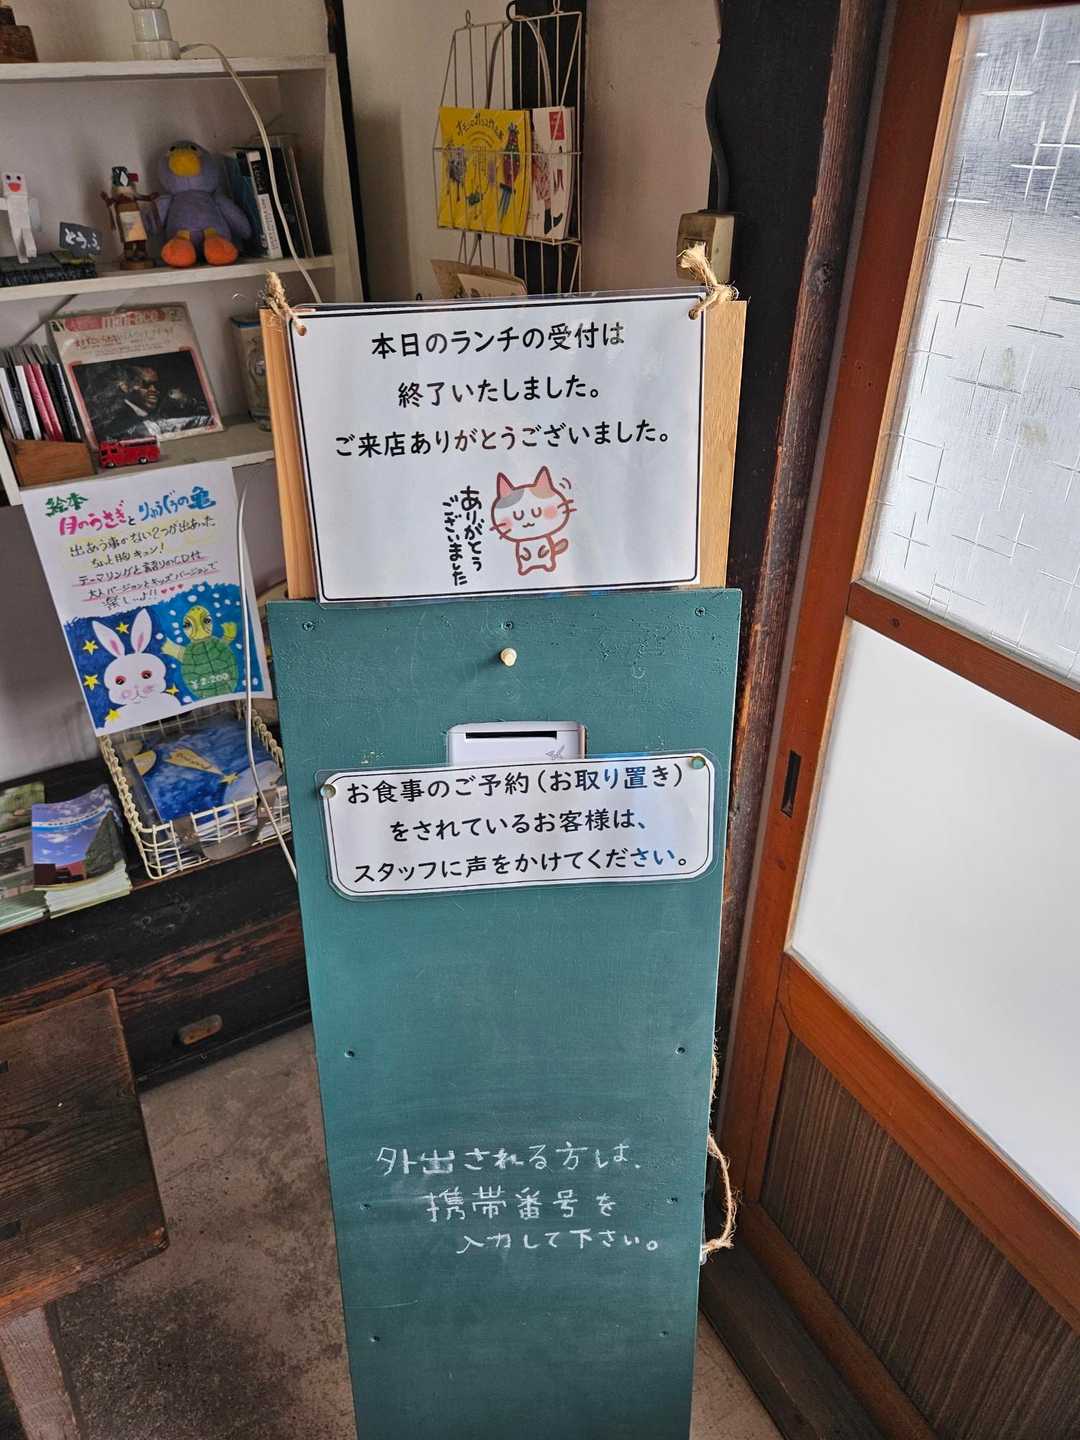 本日のランチの受付は
終了いたしました。
ご来店ありがとうございました。
ありがとう
ございました
お食事のご予約(お取り置き)
をされているお客様は、
スタッフに声をかけてください。
外出される方は、
携帯番号を
入力して下さい。
絵本
月のうさぎとりゅうぐうの亀
出あう事がない2つが出あった
ちょっと胸キュン!
テーマソングと語りのCD付
大人バージョンとキッズバージョンで
楽しいよ!!
¥2,200